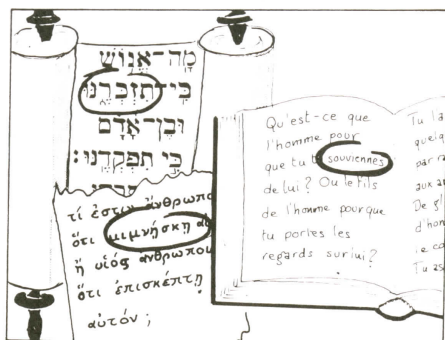 מָה־אֱנוֹשׁ
כִּי־תִזְכְּרֶנּוּ
וּבֶן־אָדָם
כִּי תִפְקְדֶנּוּ׃
τί ἐστιν ἄνθρωπο
ὅτι μιμνήσκῃ αὐ
ἢ υἱὸς ἀνθρώπου
ὅτι ἐπισκέπτῃ
αὐτόν ;
Qu'est-ce que
l'homme pour
que tu t souviennes
de lui ? Ou le fils
de l'homme pour que
tu portes les
regards sur lui ?
Tu l'a
quelq
par ra
aux a
De gl
d'hon
Tu as